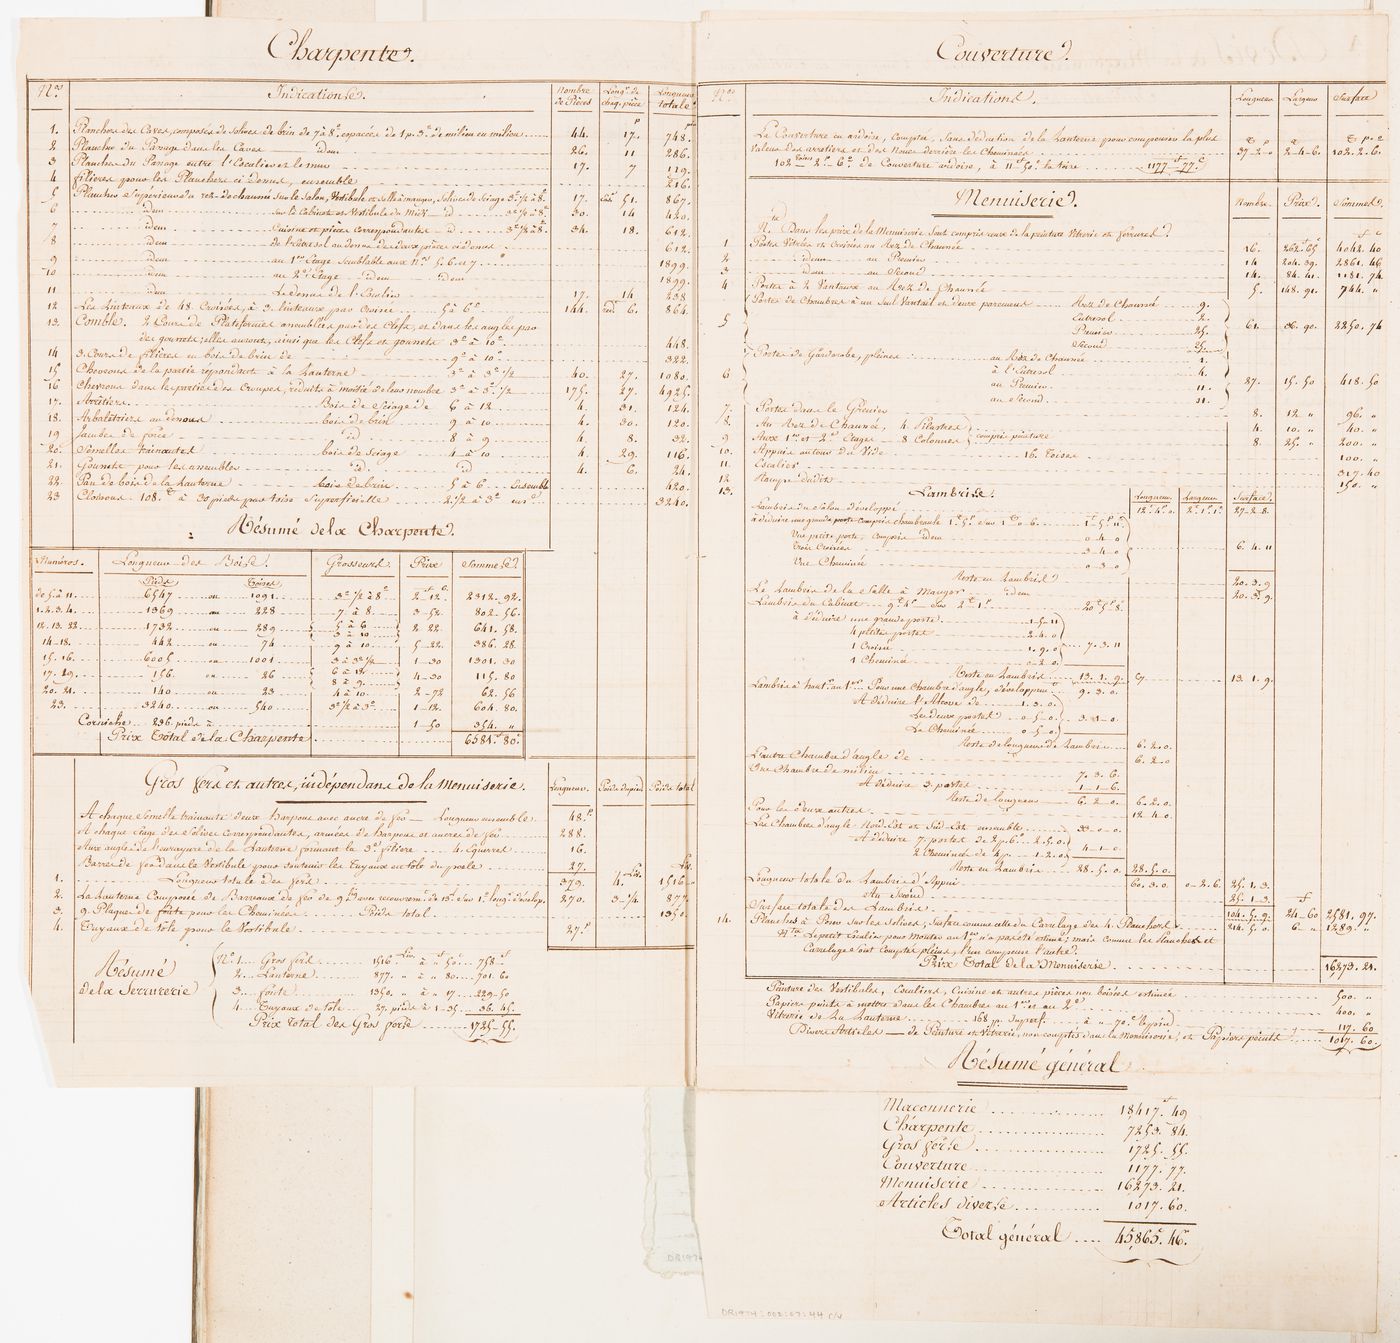 Charpente.
Nos. Indications. Nombre de Pièces Longr. de chaq. pièce Longueur totale.
1. Planchers des Caves, composés de solives de brin de 7 à 8o. espacées de 1 p. 3o. de milieu en milieu 44. 17. 748.
2 Plancher du Passage dans les Caves idem 26. 11 286.
3 Plancher du Passage entre l'Escalier et le mur 17. 7 119.
4 filières pour les Planchers ci dessus, ensemble 216.
5 Plancher Supérieur du rez-de-chaussée sur le Salon, Vestibule et Salle à manger, Solives de Sciage 3o. 1/2 à 8o. 17. 51. 867.
6 idem sur le Cabinet et Vestibule du Midi id 3o 1/2 à 8o 30. 14 420.
7 idem Cuisine et pièces correspondantes id. 3o 1/2 à 8. 34. 18. 612.
8 idem de l'Entresol au dessus des deux pièces ci dessus 612.
9 idem au 1er Etage Semblable aux nos 5. 6. et 7. 1899.
10 idem au 2e. Etage idem idem 1899.
11 idem Le dessus de l'Escalier 17. 14 238
12 Les Linteaux de 48. Croisées, à 3. linteaux par Croisée 5 à 6o. 144. réd. 6. 864.
13. Comble. 2 Cours de Plateformes assemblées par des Clefs, et dans les angles par
des goussets; elles auront, ainsi que les Clefs et goussets 3o à 10o. 448.
14 3. Cours de filières en bois de brin de 9o à 10o. 322.
15 Chevrons de la partie répondant à la Lanterne 3o à 3o. 1/2 40. 27. 1080.
16 Chevrons dans les parties des Croupes, réduits à moitié de leur nombre 3o à 3o. 1/2 175. 27 4925.
17. Arêtiers Bois de Sciage de 6 à 12. 4. 31. 124.
18. Arbalétriers au dessous bois de brin 9 à 10 4. 30. 120.
19 Jambes de force id 8 à 9 4. 8. 32.
20. Semelles traînantes bois de Sciage 4 à 10 4. 29. 116.
21. Goussets pour les assembler id. id 4. 6. 24.
22 Pan de bois de la Lanterne bois de brin 5 à 6 ensemble 420.
23 Cloisons 108. T à 30 pieds par toise Superficielle 2. 1/2 à 3o. 3240.
Résumé de la Charpente.
Numéros. Longueur des Bois. Grosseurs. Prix Sommes.
Pieds Toises
de 5 à 11. 6547 ou 1091. 3o 1/2 à 8o 2 12. 2312. 92.
1. 2. 3. 4. 1369 ou 228 7 à 8. 3-52. 802-56
12. 13. 22. 1732 ou 289 5 à 6 3 à 10 2 22. 641. 58.
14-18. 442 ou 74 9 à 10 5-22. 386. 28.
15. 16. 6005 ou 1001 3 à 3o 1/2 1-30 1301. 30
17. 19. 156. ou 26 6 à 12. 8 à 9. 4-30 115. 80
20. 21. 140 ou 23 4 à 10. 2-72 62. 56
23. 3240. ou 540 3o 1/2 à 3o. 1-12. 604. 80.
Corniche 236. pieds à 1-50 354. "
Prix Total de la Charpente 6581. 80.
Gros fers et autres, indépendans de la Menuiserie. Longueur. Poids du pied Poids total
A chaque Semelle traînante deux Harpons avec ancre de fer Longueur ensemble. 48. P
A chaque Siège des Solives correspondantes, armées de harpons et ancres de fer 288.
Aux angles de l'enrayure de la Lanterne formant la 3e. filière 4. Equerres 16.
Barres de fer dans le Vestibule pour soutenir les Tuyaux en tôle du poele 27.
1. Longueur totale des fers 379. 4. 1516
2. La Lanterne Composée de Barreaux de fer de 9 270. 3-1/4 877.
3. 9. Plaques de fonte pour les Cheminées Poids total 1350.
4. Tuyaux de tôle pour le Vestibule. 27. P
Résumé de la Serrurerie
No. 1. Gros fers 1516 Liv. à " 50c. 758 "
2. Lanterne 877. " à " 80. 701. 60
3. fonte 1350. " à " 17. 229-50
4. Tuyaux de tôle 27. pieds à 1-35. 36. 45.
Prix Total des Gros fers 1725-55.
Couverture.
Nos Indications. Longueur Largeur Surface
La Couverture en ardoise, comptée, Sans déduction de la Lanterne pour compenser la plus
valeur des arretiers et des Noues derrière les Cheminées 37-2-0 2-4-6. 102. 2. 6.
102 Toises 2. P 6. o de Couverture ardoise, à 11 50. la toise 1177. 77.
Menuiserie. Nombre. Prix. Sommes.
Nta. Dans les prix de la Menuiserie Sont compris ceux de la peinture Vitrerie et ferrures.
1 Portes Vitrées et Croisées au Rez de Chaussée 16. 262. 65 4042. 40
2 idem au Premier 14 204. 39. 2861. 46
3 idem au Second 14. 84. 41. 1181. 74
4 Portes à 2 Vantaux au Rez de Chaussée 5. 148. 91. 744. "
5 Porte de Chambres à un Seul Vantail et deux parements Rez de Chaussée 9.
Entresol 2.
Premier 25. 61. 36. 90. 2250. 76
Second 25
6 Portes de Garderobe, pleines au Rez de Chaussée 1.
à l'Entresol 4.
au Premier 11. 27. 15. 50 418. 50
au Second. 11.
7. Portes dans le Grenier 8. 12 " 96. "
8. Au Rez de Chaussée, 4 Pilastres 4. 10. " 40. "
9 Aux 1er et 2e. Etages 8 Colonnes compris peinture 8. 25 " 200. "
10. Appuis autour du Vide 16. Toises 100. "
11. Escalier 317. 40
12 Rampe dudit 150. "
13. Lambris. Longueurs Largeurs Surfaces.
Lambris du Salon développé 12. 4. 0. 2. 1. 1. 27-2-8.
à déduire une grande porte compris chambranle 1. 5. sur 1. 0 6. 1-5. 11.
Une petite porte, compris idem 0 4 0
Trois Croisées 3-4 0 6. 4. 11
Une Cheminée 0 3-0
Reste en Lambris 20. 3. 9
Le Lambris de la Salle à Manger idem 20. 3. 9.
Lambris du Cabinet 9. 4. sur 2. 1. 20. 5. 8.
à déduire une grande porte 1-5-11
4 petites portes 2-4. 0
1 Croisée 1. 9. 0 7. 3. 11
1 Cheminée 0-2. 0
Reste en Lambris 13. 1. 9. 13. 1. 9.
Lambris à haut. au 1er. Pour une Chambre d'angle, développement 9. 3. 0.
A déduire l'Alcove de 1. 3. 0.
Les deux portes 0-5-0. 3. 1-0.
La Cheminée 0 5 0.
Reste de longueur de Lambris 6. 2. 0.
L'autre Chambre d'angle de 6. 2. 0
Une Chambre de milieu 7. 3. 6.
A déduire 3. portes 1. 1-6.
Reste de longueur 6. 2. 0. 6. 2. 0.
Pour les deux autres 12. 4. 0.
Les Chambres d'angle Nord-Est et Sud-Est ensemble 33-0-0.
A déduire 7. portes de 2 p. 6. 2. 5. 0.
2 Cheminées de 4 p. 1-2. 0. 4-1-0
Reste en Lambris 28. 5. 0. 28. 5. 0.
Longueur totale du Lambris d'Appui 60. 3. 0. 0-2. 6. 25. 1. 3.
Au Second 25. 1-3.
Surface totale des Lambris 104. 5. 9. 24-60 2581. 97.
14. Planches à Poser sur les Solives, Surface comme celle du Carrelage des 4. Planchers 214. 5. 0. 6 " 1289. "
Nta. Le petit Escalier pour Monter au 1er. n'a pas été estimé; mais comme les Planchers et
Carrelages sont comptés pleins, l'un compense l'autre.
Prix Total de la Menuiserie 16273. 21.
Peinture des Vestibules, Escaliers, Cuisine et autres pièces non boisées estimée 500. "
Papiers peints à mettre dans les Chambres au 1er et au 2e 400. "
Vitrerie de la Lanterne 168 p. Superf. à " 70. c le pied 117. 60
Divers Articles de Peinture et Vitrerie, non comptés dans la Menuiserie, et Papiers peints 1017. 60.
Résumé général
Maçonnerie 18417. 49
Charpente 7253. 84.
Gros fers 1725. 55.
Couverture 1177. 77.
Menuiserie 16273. 21.
Articles divers 1017. 60.
Total général 45,865. 46.
DR1974:0002:07:44 r/v